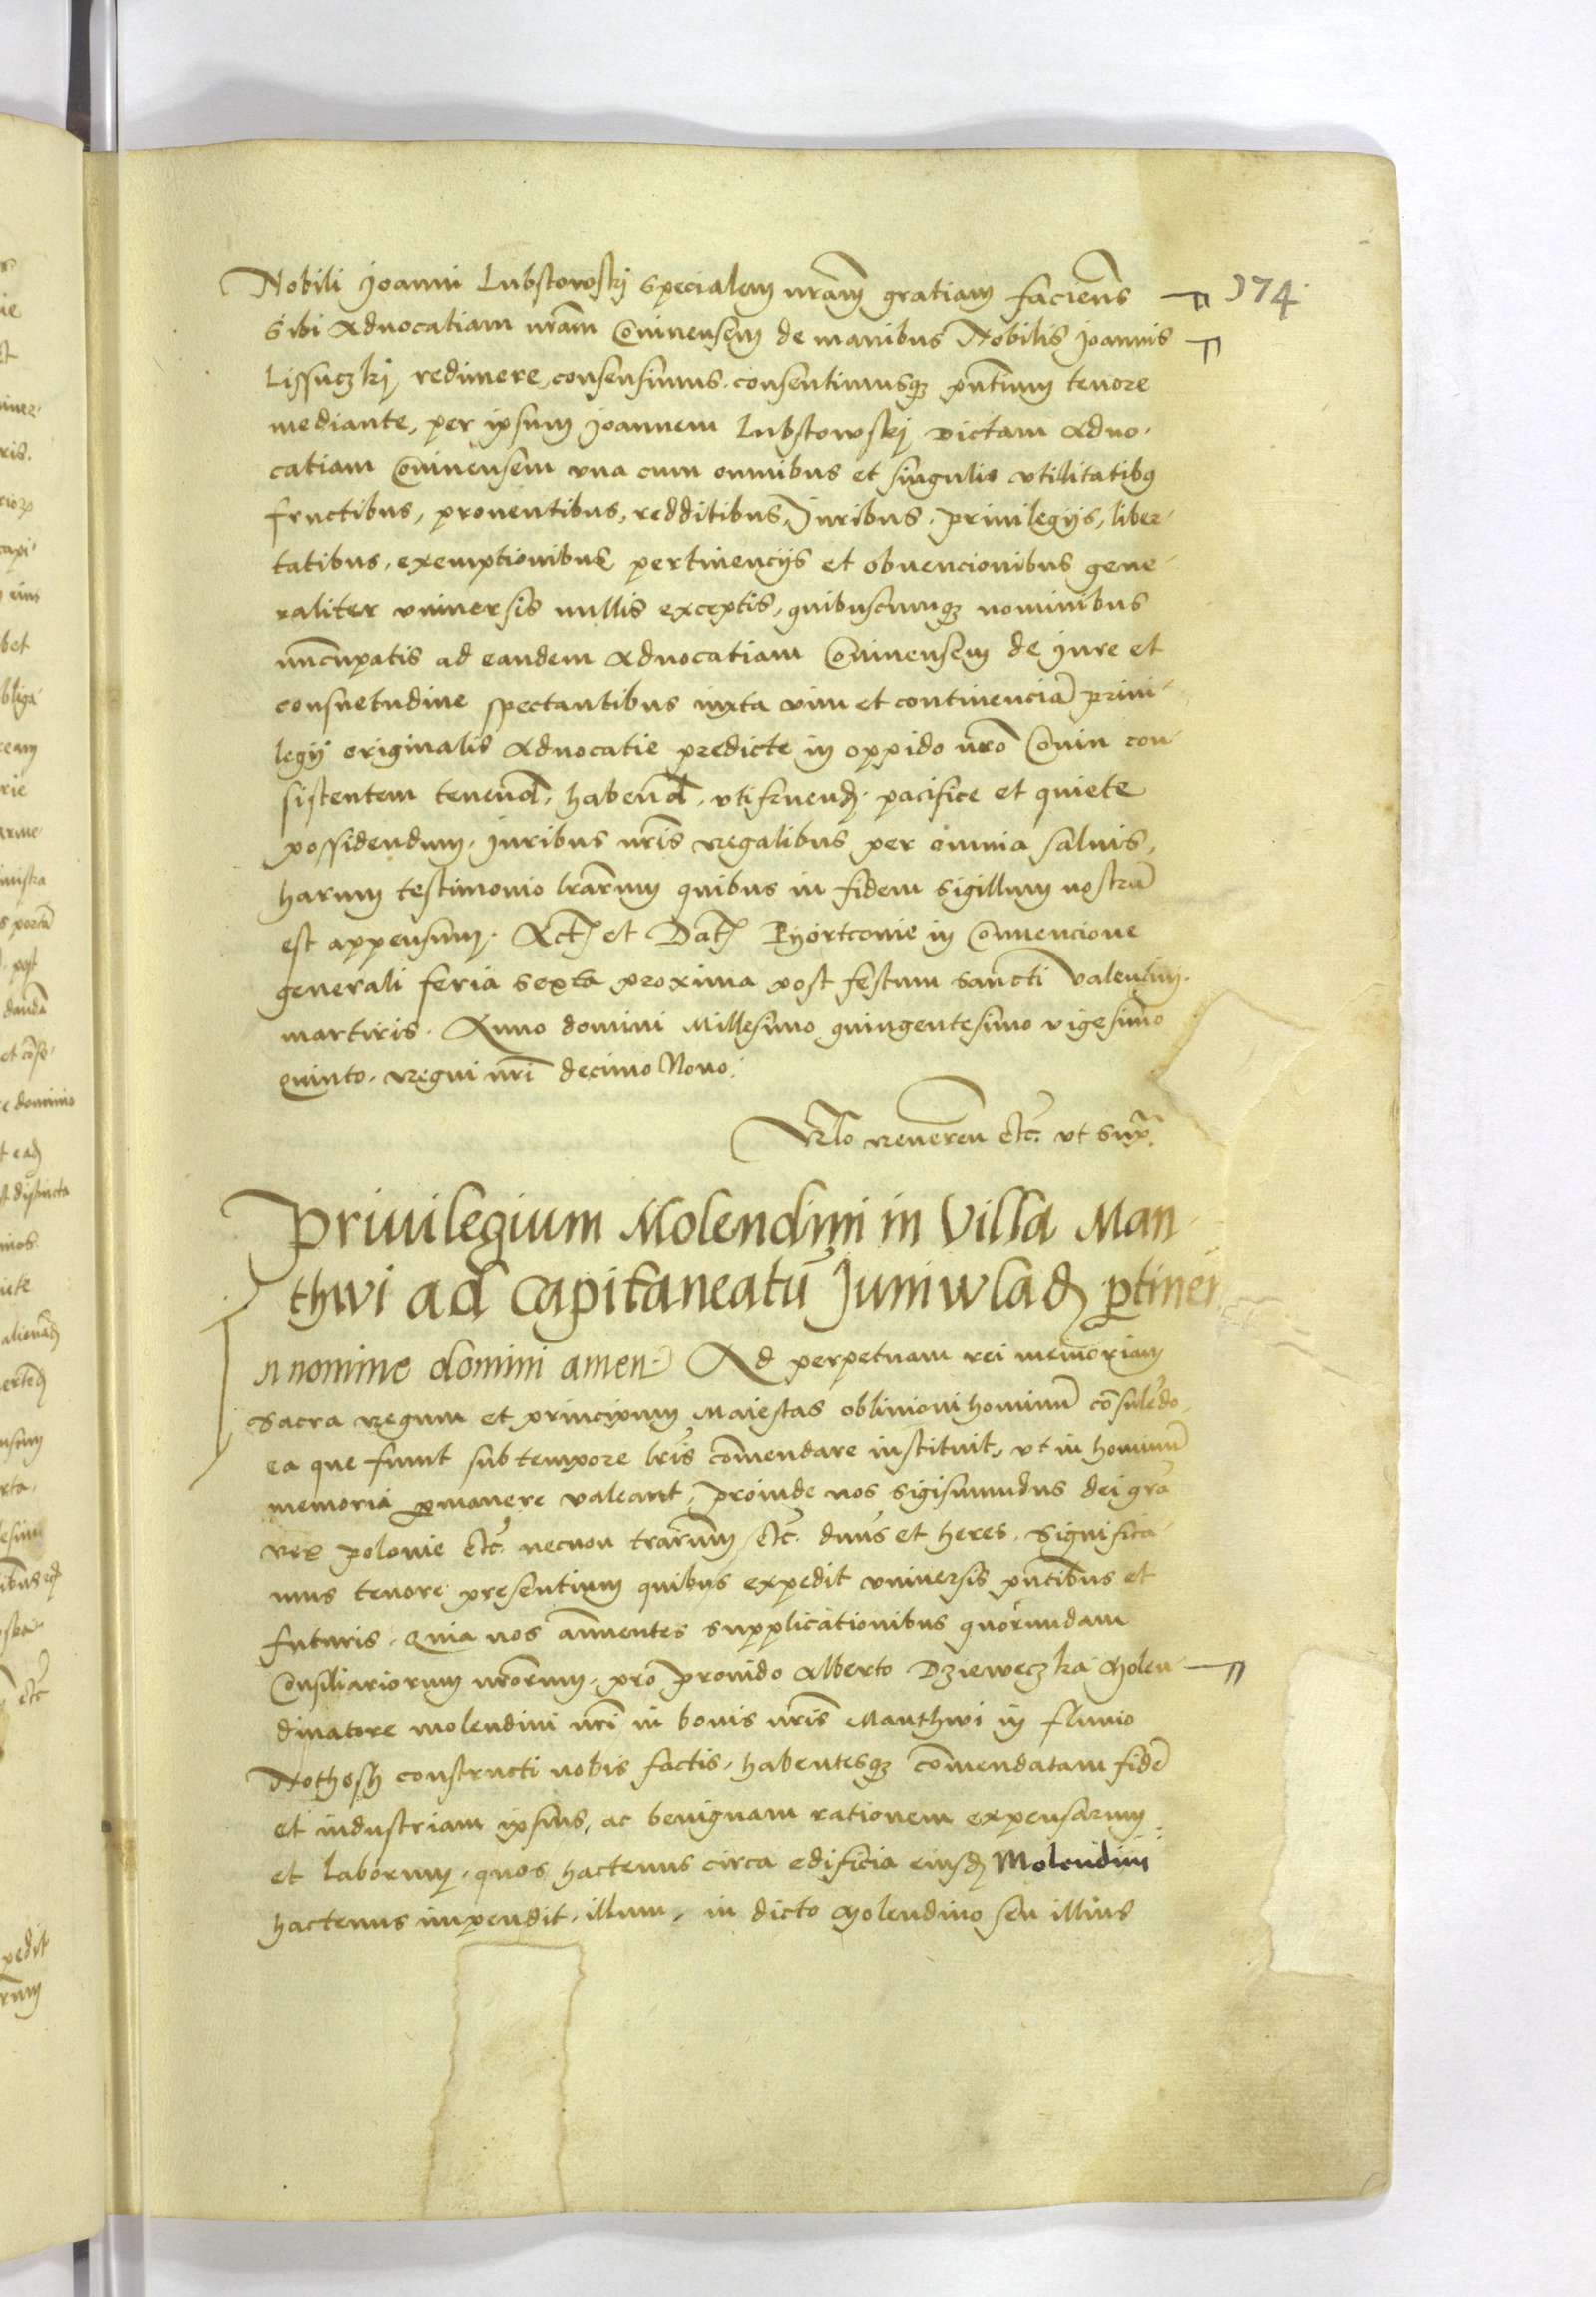 174
Nobili Joanni Lubstowskj specialem nr̃am gratiam faciens̃
sibi Aduocatiam nr̃am Coninensem de manibus Nobilis Joannis
Lissuczkj redimere, consensimus. consentimusqȝ pñtium tenore
mediante, per ipsum Joannem Lubstowskj dictam Aduo-
catiam Coninensem vna cum omnibus et singulis vtilitatibus
fructibus, prouentibus, redditibus, Juribus. priuilegijs, liber-
tatibus, exemptionibus pertinencijs et obuencionibus gene-
raliter vniuersis nullis exceptis, quibuscumqȝ nominibus
nũcupatis ad eandem Aduocatiam Coninensem de jure et
consuetudine spectantibus iuxta vim et continenciã priui-
legij originalis Aduocatie predicte in oppido nr̃o Conin con-
sistentem tenend̃, habend̃, vtifruend̃. pacifice et quiete
possidendum. Juribus nr̃is regalibus per omnia saluis,
harum testimonio l̃rarum quibus in fidem sigillum nostrũ
est appensum. Act̃ et Dat̃ Pyotrconie in Conuencione
generali feria sexta proxima post festum sancti Valentini
martiris. Anno domini Millesimo quingentesimo vigesimo
quinto. regni nr̃i decimo Nono.
R̃lo reueren etc̃. vt sup̃.
Priuilegium Molendini in Villa Man-
thwi ad Capitaneatũ Juniwlad̃ ꝑtinen
In nomine domini amen. Ad perpetuam rei memoriam
Sacra regum et principum Maiestas obliuioni hominũ cõsulẽdo,
ea que fiunt sub tempore l̃ris cõmendare instituit, vt in hominũ
memoria ꝑmanere valeant, proinde nos Sigismundus dei gr̃a
rex polonie etc̃. necnon terrarum etc̃. dñus et heres. Significa-
mus tenore presentium quibus expedit vniuersis pñtibus et
futuris. Quia nos annuentes supplicationibus quorundam
Consiliariorum nr̃orum, pro prouido Alberto Dzieweczka Molen-
dinatore molendini nr̃i in bonis nr̃is Manthwi in fluuio
Nothesh constructi nobis factis, habentesqȝ cõmendatam fidẽ
et industriam ipsius, ac benignam rationem expensarum
et laborum, quos hactenus circa edificia eiusd̃ Molendini
hactenus impendit, illum, in dicto Molendino seu illius